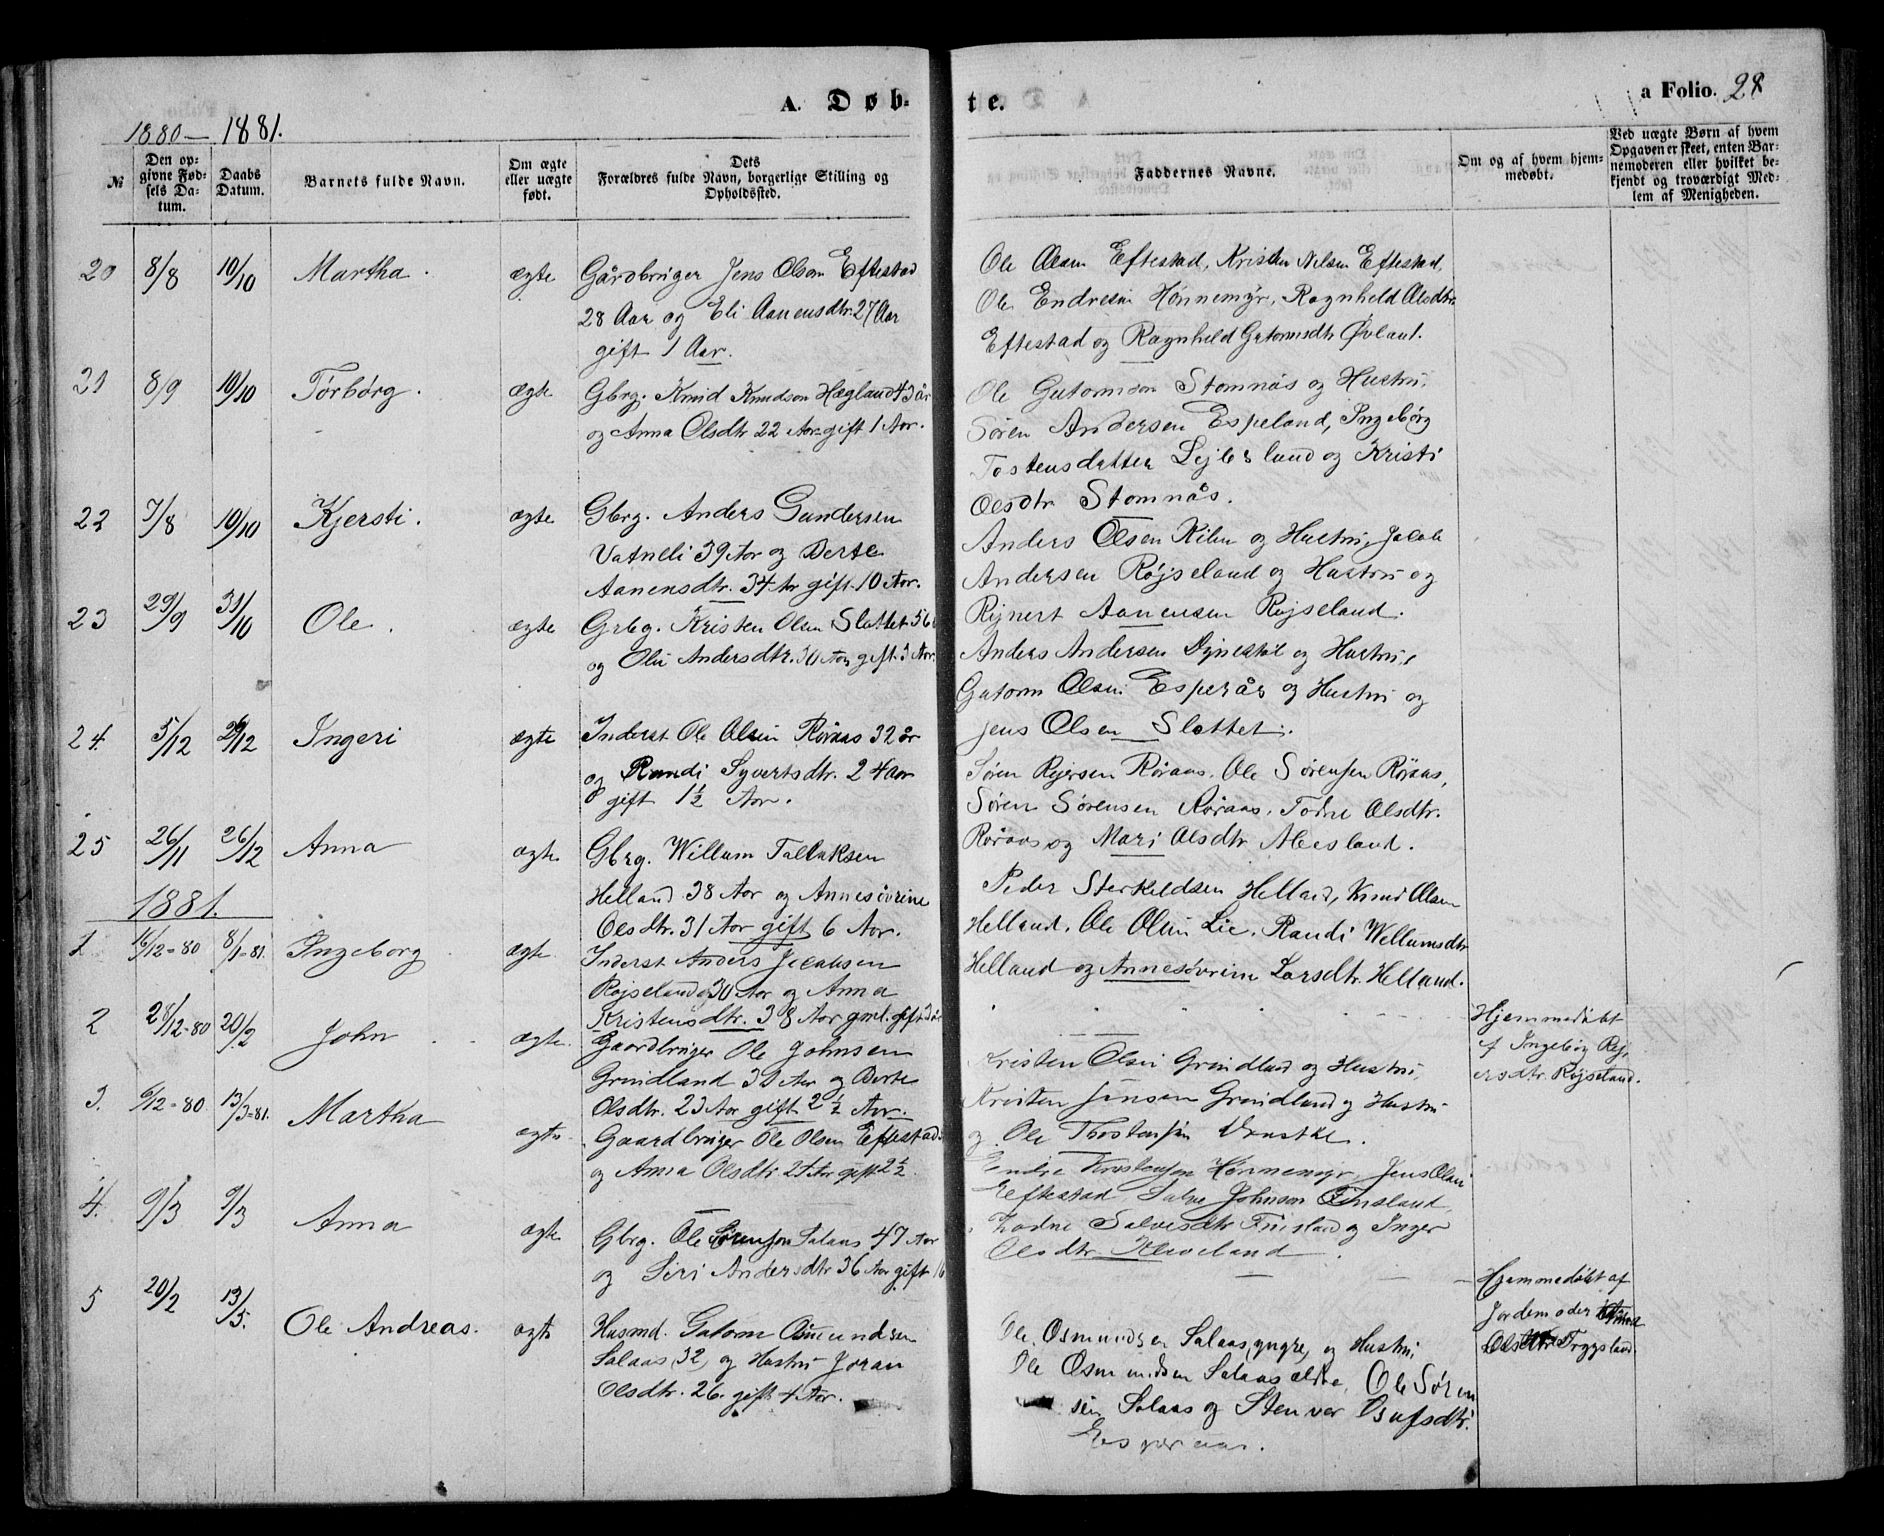 A. Døb-
te.
a Folio. 28
1880 — 1881.
№
Den op-
givne Fød-
sels Da-
tum.
Daabs
Datum.
Barnets fulde Navn.
Om ægte
eller uægte
født.
Dets
Forældres fulde Navn, borgerlige Stilling og
Opholdssted.
Faddernes Navne.
Om og af hvem hjem-
medøbt.
Ved uægte Børn af hvem
Opgaven er skeet, enten Bar-
nemoderen eller hvilket be-
kjendt og troværdigt Med-
lem af Menigheden.
20 8/8 10/10 Martha. ægte Gårdbruger Jens Olsen Eftestad
28 Aar og Eli Aanensdtr. 27 Aar
gift 1 Aar.
Ole Olsen Eftestad, Kristen Nilsen Eftestad,
Ole Endresen Hønnemyr, Ragnheld Olsdtr.
Eftestad og Ragnheld Gutormsdtr Øvland.
21 8/9 10/10 Tørbórg. ægte Gbrg. Knud Knudson Hægland 43 år
og Anna Olsdtr 22 Aar gift 1 Aar.
Ole Gutormson Stomnås og Hustru,
Sören Andersen Espeland, Ingebórg
Tostensdatter Lejlesland og Kristi
Olsdtr Stomnås.
22 7/8 10/10 Kjersti. ægte Gbrg. Anders Gundersen
Vatneli 39 Aar og Berte
Aanensdtr. 34 Aar gift 10 Aar.
Anders Olsen Kilen og Hustru, Jacob
Andersen Røjseland og Hustru og
Rejnert Aanensen Røjseland.
23 29/9 31/10 Ole. ægte Grbg. Kristen Olsen Slottet 56
og Oli Andersdtr. 30 Aar gift 3 Aar.
Anders Andersen Dynestøl og Hustru,
Gutorm Olsen Esperås og Hustru og
Jens Olsen Slottet.
24. 5/12 26/12 Ingeri ægte Inderst Ole Olsen Røraas 32 år
og Randi Syvertsdtr. 24 aar
gift 1½ Aar.
Søren Rejersen Røraas. Ole Sørensen Røraas,
Søren Sørensen Røraas. Todne Olsdtr.
Røraas og Mari Olsdtr Abesland.
25 26/11 26/12 Anna ægte Gbrg. Willum Tallaksen
Helland 38 Aar og Annesøvrine
Olsdtr. 31 Aar gift 6 Aar.
Peder Sterkeldsen Helland, Knud Olsen
Helland. Ole Olsen Lie. Randi Wellumsdtr.
Helland og Annesøvrine Larsdtr. Helland.
1881.
1 16/12-80 8/1-81. Ingeborg ægte Inderst Anders Jacobsen
Røjseland 30 Aar og Anna
Kristensdtr. 38 Aar gml. gift 3 år
Hjemmedøbt
af Ingebórg Rej-
ersdtr. Røjseland.
2 28/12-80 20/2 John ægte. Gaardbruger Ole Johnsen
Grindland 30 Aar og Berte
Olsdtr. 23 Aar gift 2½ Aar.
Kristen Olsen Grindland og Hustru,
Kristen Jensen Grindland og Hustru
og Ole Thostensen
3. 6/12-80 13/3-81. Martha ægte Gaardbruger Ole Olsen Eftestad
og Anna Olsdtr 27 Aar gift 2½.
Endre Hønnemyr, Jens Olsen
Eftestad, Salve Johnson Finsland,
Todne Salvesdtr Finsland og Inger
Olsdtr. Kleveland.
4. 9/3 9/3 Anna ægte Gbrg. Ole Sørensen Salaas 47 Aar
og Siri Andersdtr 36 Aar gift 16
Hjemmedøbt af
Jordemoder
Olsdtr Trygsland.
5 20/2 13/5. Ole Andreas. ægte Husmd. Gutorm Osmundsen
Salaas, 32, og Hustru Joran
Olsdtr. 26. gift 4 Aar.
Ole Osmundsen Salaas, yngre, og Hustru,
Ole Osmundsen Salaas ældre, Ole Søren
sen Salaas og Stenver Osufsdtr.
Esperaas.